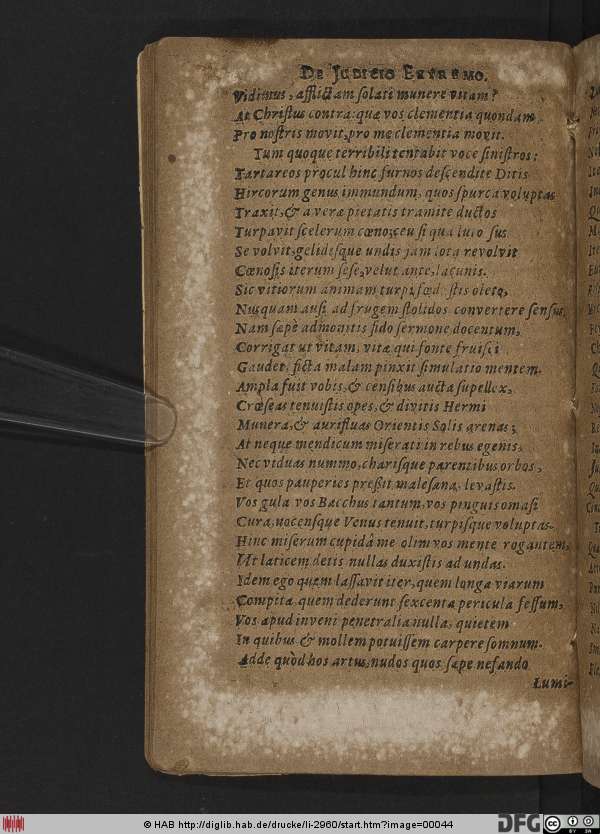 DE JUDICIO EXTREMO.
Vidimus, afflictam solati munere vitam?
At Christus contra: quæ vos clementia quondam
Pro nostris movit, pro me clementia movit.
Tum quoque terribili tentabit voce sinistros:
Tartareos procul hinc furnos descendite Ditis
Hircorum genus immundum, quos spurca voluptas
Traxit, & a veræ pietatis tramite ductos
Turpavit scelerum cœno; ceu si qua luto sus
Se volvit, gelidisque undis jam lota revolvit
Cœnosis iterum sese, velut ante, lacunis.
Sic vitiorum animam turpi fœdastis oleto,
Nusquam ausi ad frugem stolidos convertere sensus,
Nam sæpè admonitis fido sermone docentum,
Corrigat ut vitam, vitæ qui fonte fruisci
Gaudet, ficta malam pinxit simulatio mentem.
Ampla fuit vobis, & censibus aucta supellex,
Crœseas tenuistis opes, & divitis Hermi
Munera, & aurifluas Orientis Solis arenas;
At neque mendicum miserati in rebus egenis,
Nec viduas nummo, charisque parentibus orbos,
Et quos pauperies pressit malesana, levastis.
Vos gula vos Bacchus tantum, vos pinguis omasi
Cura, nocensque Venus tenuit, turpisque voluptas.
Hinc miserum cupidâ me olim vos mente rogantem,
Ut laticem detis nullas duxistis ad undas.
Idem ego quem lassavit iter, quem longa viarum
Compita quem dederunt sexcenta pericula fessum,
Vos apud inveni penetralia nulla, quietem
In quibus & mollem potuissem carpere somnum.
Adde quòd hos artus, nudos quos sæpe nefando
Lumi-
© HAB http://diglib.hab.de/drucke/li-2960/start.htm?image=00044
DFG
CC BY SA